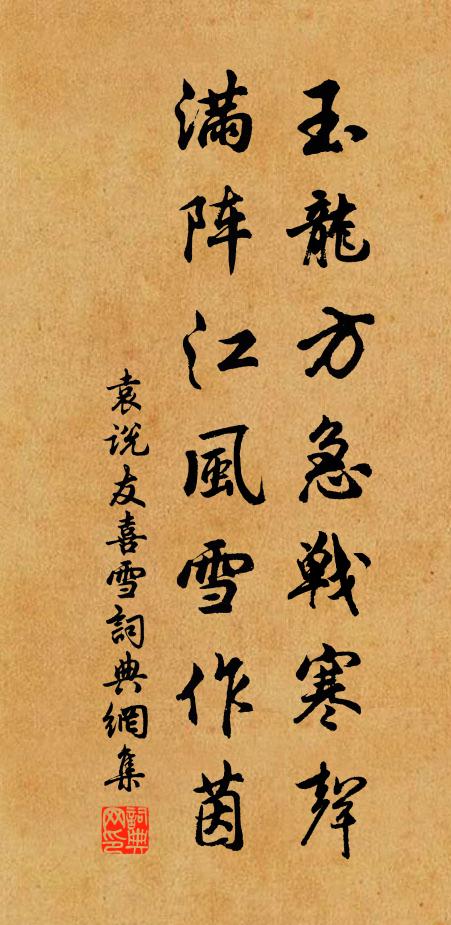 玉龍方急戦寒聲
满阵江風雪作茵
袁说友喜雪詞典網集
詞典网印